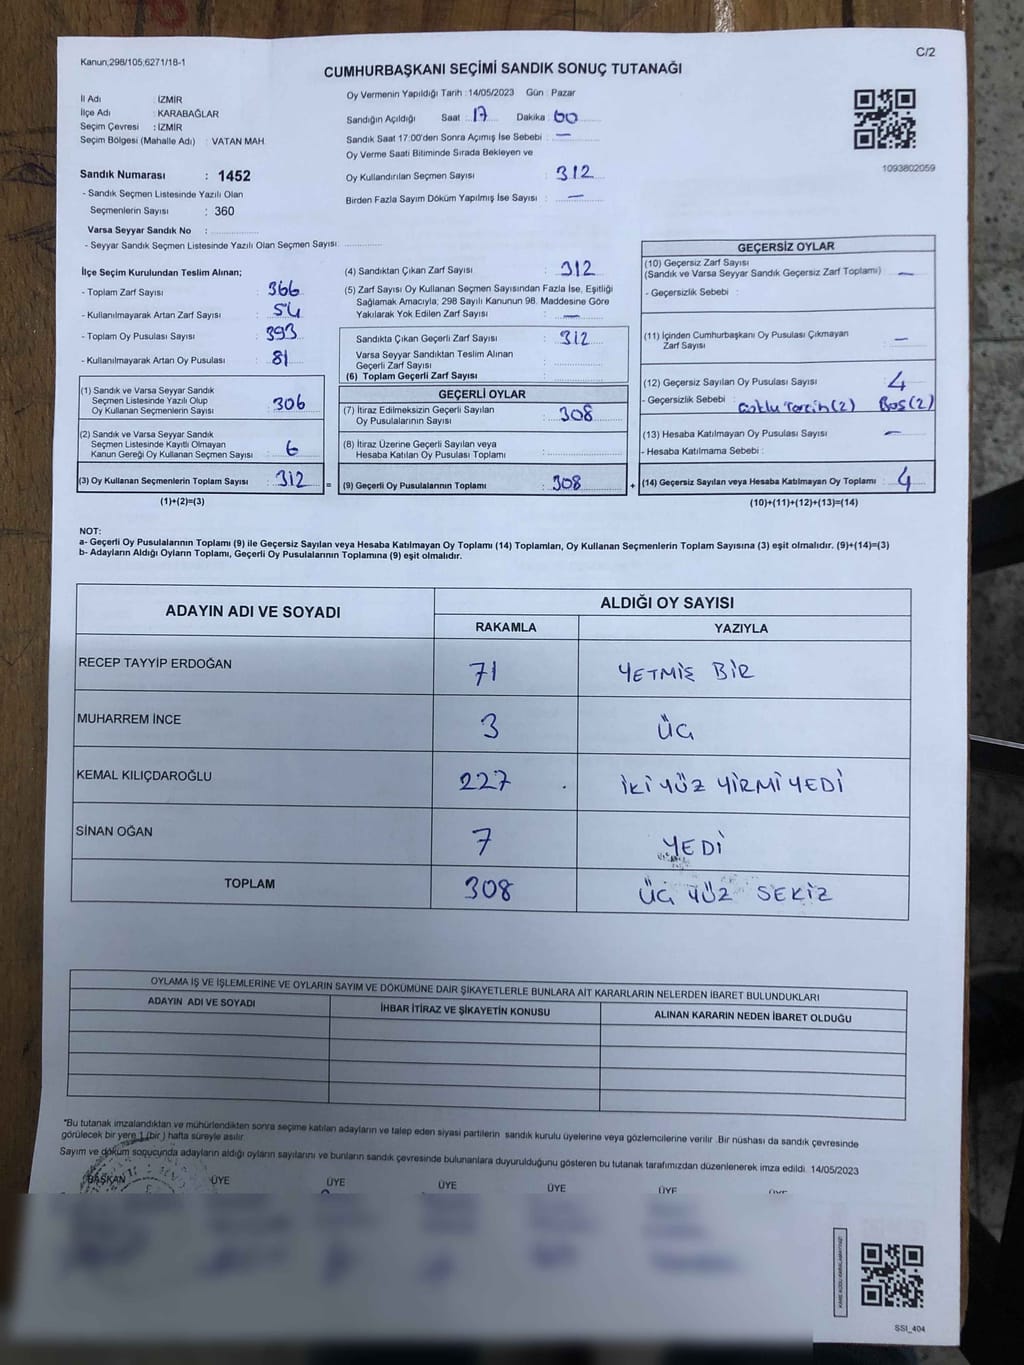 Kanun,298/105,6271/18-1
C/2
CUMHURBAŞKANI SEÇİMİ SANDIK SONUÇ TUTANAĞI
İl Adı : İZMİR
İlçe Adı : KARABAĞLAR
Seçim Çevresi : İZMİR
Seçim Bölgesi (Mahalle Adı) : VATAN MAH.
Oy Vermenin Yapıldığı Tarih : 14/05/2023 Gün : Pazar
Sandığın Açıldığı Saat : 17 Dakika : 00
Sandık Saat 17:00'den Sonra Açımış İse Sebebi : —
Oy Verme Saati Bitiminde Sırada Bekleyen ve
Oy Kullandırılan Seçmen Sayısı : 312
Birden Fazla Sayım Döküm Yapılmış İse Sayısı : —
1093802059
Sandık Numarası : 1452
- Sandık Seçmen Listesinde Yazılı Olan
Seçmenlerin Sayısı : 360
Varsa Seyyar Sandık No :
- Seyyar Sandık Seçmen Listesinde Yazılı Olan Seçmen Sayısı:
İlçe Seçim Kurulundan Teslim Alınan;
- Toplam Zarf Sayısı : 366
- Kullanılmayarak Artan Zarf Sayısı : 54
- Toplam Oy Pusulası Sayısı : 393
- Kullanılmayarak Artan Oy Pusulası : 81
(1) Sandık ve Varsa Seyyar Sandık
Seçmen Listesinde Yazılı Olup
Oy Kullanan Seçmenlerin Sayısı : 306
(2) Sandık ve Varsa Seyyar Sandık
Seçmen Listesinde Kayıtlı Olmayan
Kanun Gereği Oy Kullanan Seçmen Sayısı : 6
(3) Oy Kullanan Seçmenlerin Toplam Sayısı : 312 =
(1)+(2)=(3)
(4) Sandıktan Çıkan Zarf Sayısı : 312
(5) Zarf Sayısı Oy Kullanan Seçmen Sayısından Fazla İse, Eşitliği
Sağlamak Amacıyla; 298 Sayılı Kanunun 98. Maddesine Göre
Yakılarak Yok Edilen Zarf Sayısı : —
Sandıkta Çıkan Geçerli Zarf Sayısı : 312
Varsa Seyyar Sandıktan Teslim Alınan
Geçerli Zarf Sayısı :
(6) Toplam Geçerli Zarf Sayısı :
GEÇERLİ OYLAR
(7) İtiraz Edilmeksizin Geçerli Sayılan
Oy Pusulalarının Sayısı : 308
(8) İtiraz Üzerine Geçerli Sayılan veya
Hesaba Katılan Oy Pusulası Toplamı :
(9) Geçerli Oy Pusulalarının Toplamı : 308 +
GEÇERSİZ OYLAR
(10) Geçersiz Zarf Sayısı
(Sandık ve Varsa Seyyar Sandık Geçersiz Zarf Toplamı) : —
- Geçersizlik Sebebi :
(11) İçinden Cumhurbaşkanı Oy Pusulası Çıkmayan
Zarf Sayısı : —
(12) Geçersiz Sayılan Oy Pusulası Sayısı : 4
- Geçersizlik Sebebi : Çoklu Tercih(2) Boş(2)
(13) Hesaba Katılmayan Oy Pusulası Sayısı : —
- Hesaba Katılmama Sebebi :
(14) Geçersiz Sayılan veya Hesaba Katılmayan Oy Toplamı : 4
(10)+(11)+(12)+(13)=(14)
NOT:
a- Geçerli Oy Pusulalarının Toplamı (9) ile Geçersiz Sayılan veya Hesaba Katılmayan Oy Toplamı (14) Toplamları, Oy Kullanan Seçmenlerin Toplam Sayısına (3) eşit olmalıdır. (9)+(14)=(3)
b- Adayların Aldığı Oyların Toplamı, Geçerli Oy Pusulalarının Toplamına (9) eşit olmalıdır.
ADAYIN ADI VE SOYADI
ALDIĞI OY SAYISI
RAKAMLA YAZIYLA
RECEP TAYYİP ERDOĞAN 71 YETMİŞ BİR
MUHARREM İNCE 3 ÜÇ
KEMAL KILIÇDAROĞLU 227 İKİ YÜZ YİRMİ YEDİ
SİNAN OĞAN 7 YEDİ
TOPLAM 308 ÜÇ YÜZ SEKİZ
OYLAMA İŞ VE İŞLEMLERİNE VE OYLARIN SAYIM VE DÖKÜMÜNE DAİR ŞİKAYETLERLE BUNLARA AİT KARARLARIN NELERDEN İBARET BULUNDUKLARI
ADAYIN ADI VE SOYADI İHBAR İTİRAZ VE ŞİKAYETİN KONUSU ALINAN KARARIN NEDEN İBARET OLDUĞU
*Bu tutanak imzalandıktan ve mühürlendikten sonra seçime katılan adayların ve talep eden siyasi partilerin sandık kurulu üyelerine veya gözlemcilerine verilir .Bir nüshası da sandık çevresinde
görülecek bir yere 1 (bir ) hafta süreyle asılır.
Sayım ve döküm sonucunda adayların aldığı oyların sayılarını ve bunların sandık çevresinde bulunanlara duyurulduğunu gösteren bu tutanak tarafımızdan düzenlenerek imza edildi. 14/05/2023
BAŞKAN ÜYE ÜYE ÜYE ÜYE ÜYE
SSI_404